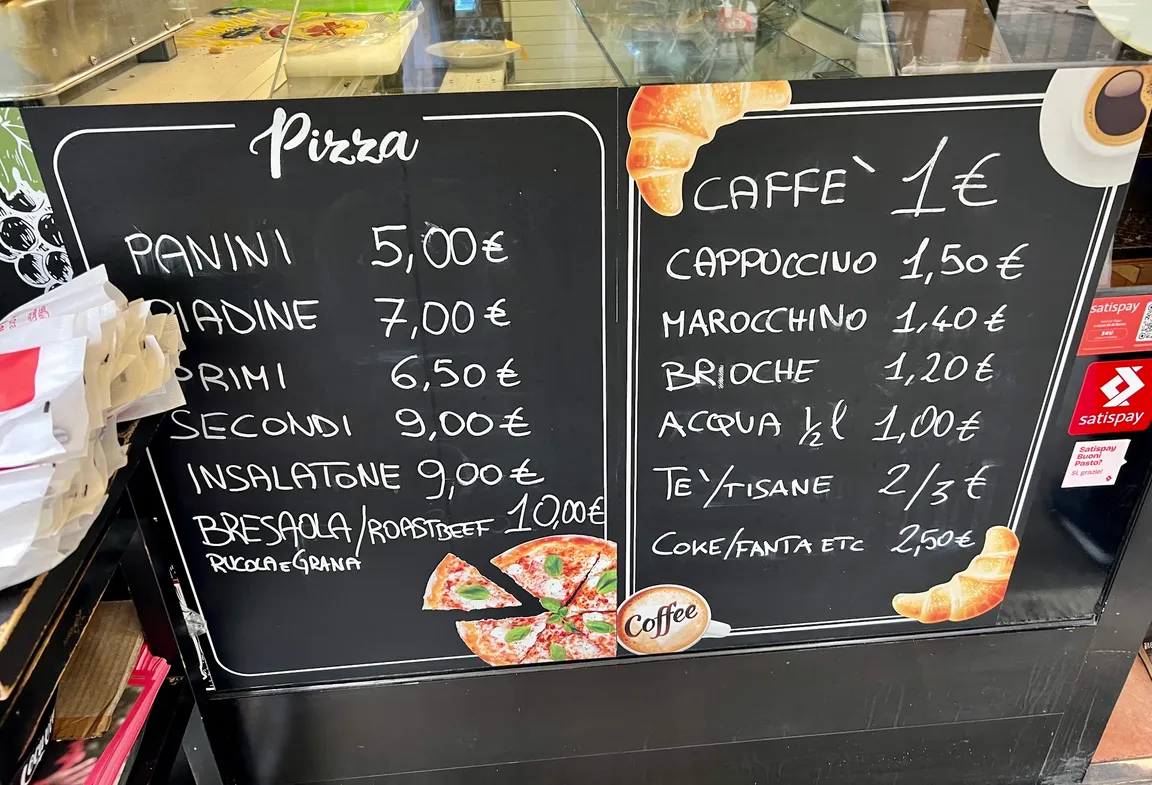 Pizza
PANINI 5,00€
PIADINE 7,00€
PRIMI 6,50€
SECONDI 9,00€
INSALATONE 9,00€
BRESAOLA/ROASTBEEF 10,00€
RUCOLA E GRANA
CAFFE` 1€
CAPPUCCINO 1,50€
MAROCCHINO 1,40€
BRIOCHE 1,20€
ACQUA ½ l 1,00€
TE`/TISANE 2/3€
COKE/FANTA ETC 2,50€
Coffee
satispay
satispay
Satispay
Buoni
Pasto?
Sì, grazie!